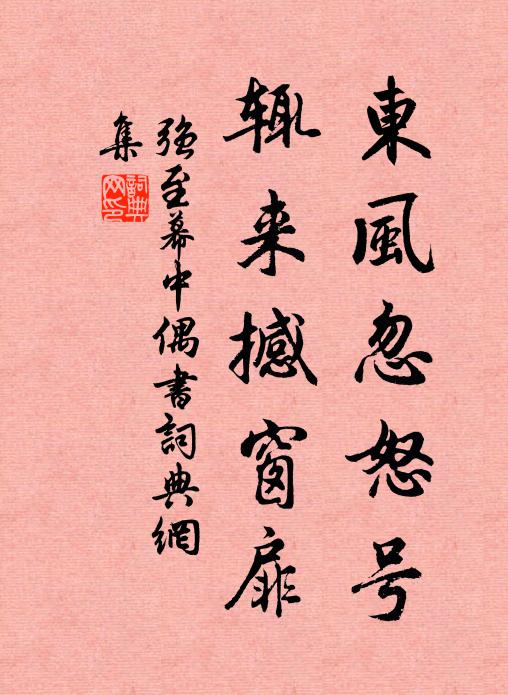 東風忽怒号
辄来撼窗扉
强至幕中偶書詞典網
集
詞典网印